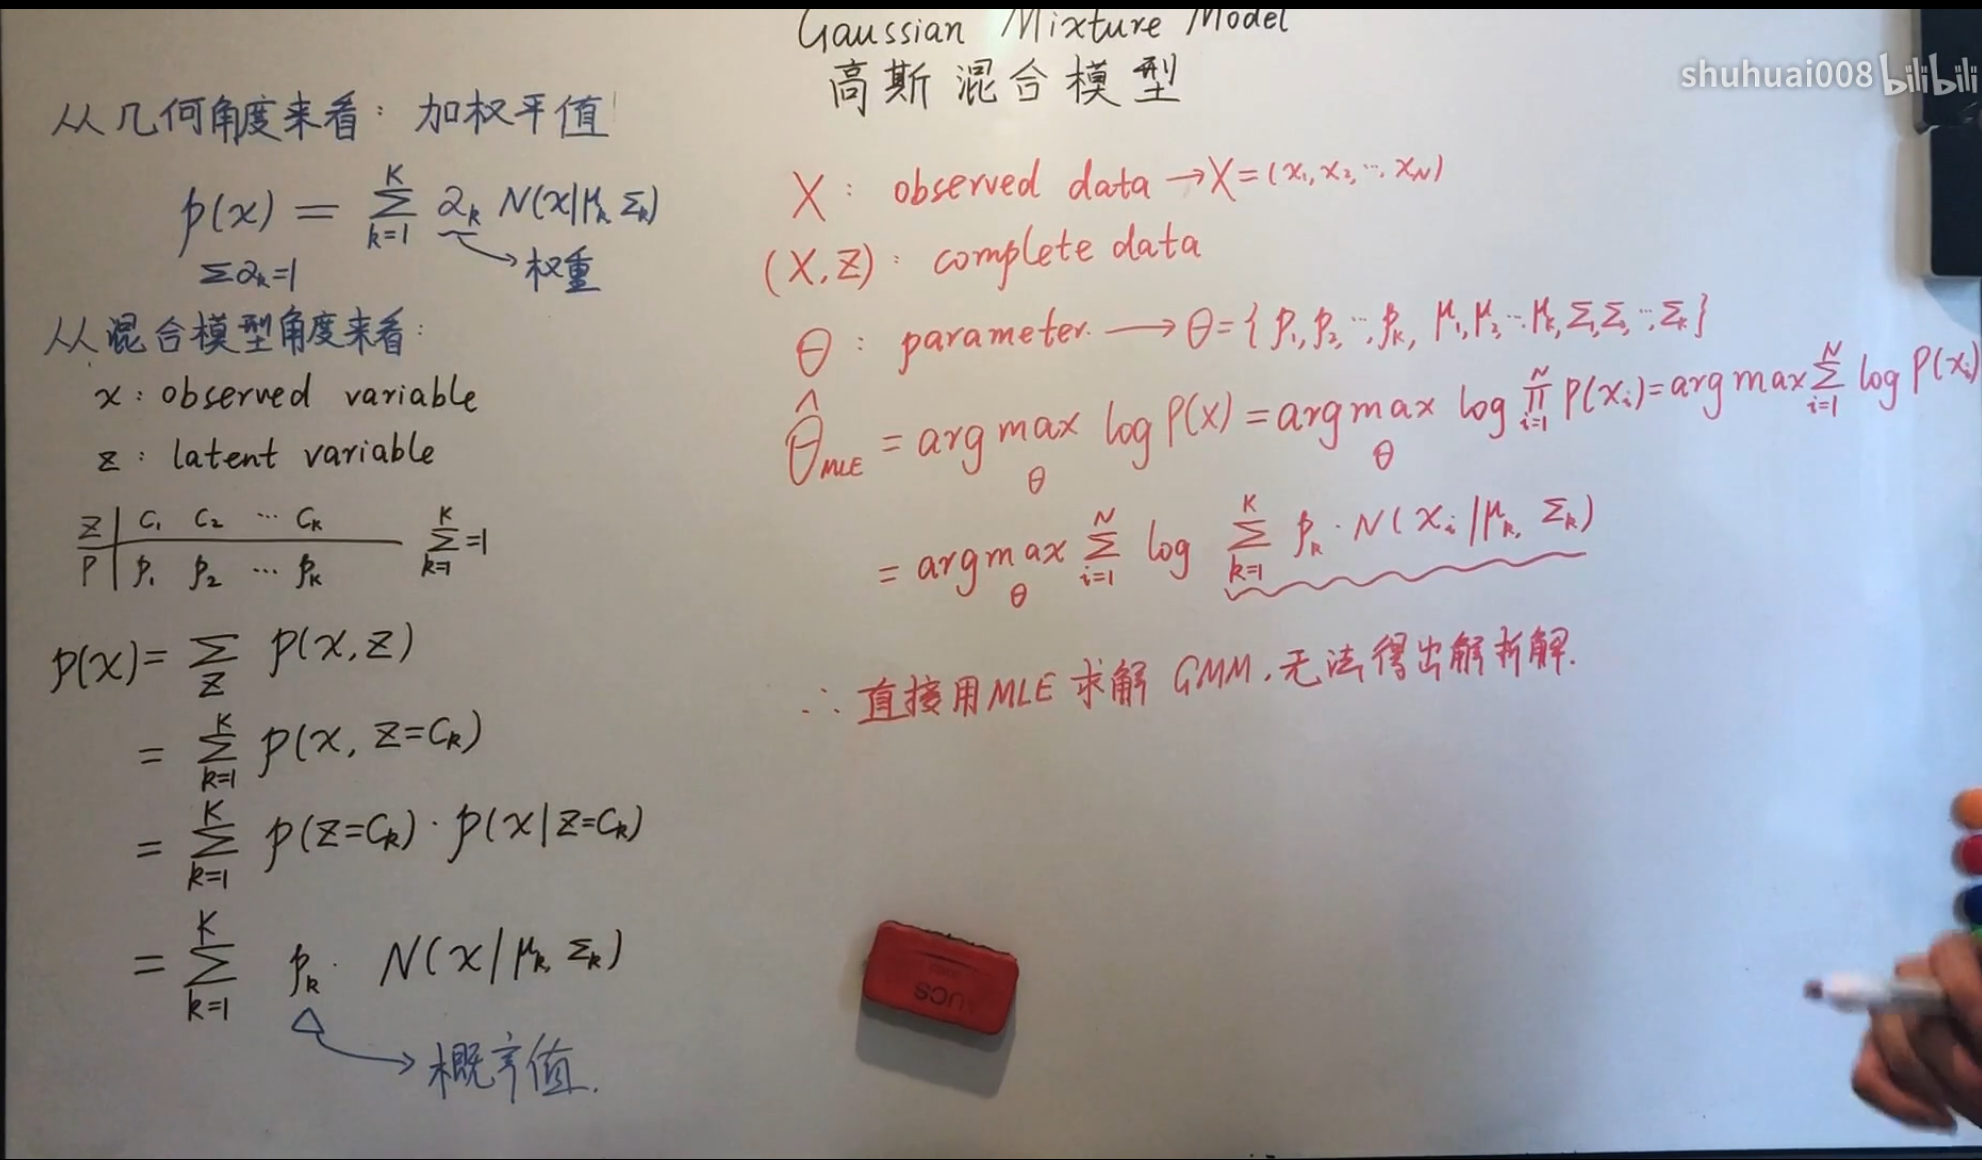 Gaussian Mixture Model
高斯混合模型
shuhuai008 bilibili
从几何角度来看: 加权平值
p(x) = ∑_{k=1}^{K} α_k N(x|μ_k, Σ_k)
∑α_k=1
权重
从混合模型角度来看:
x: observed variable
z: latent variable
z | C_1 C_2 ⋯ C_k
p | p_1 p_2 ⋯ p_k
∑_{k=1}^{K} =1
p(x)= ∑_z p(x,z)
= ∑_{k=1}^{K} p(x, z=C_k)
= ∑_{k=1}^{K} p(z=C_k)·p(x|z=C_k)
= ∑_{k=1}^{K} p_k · N(x|μ_k, Σ_k)
概率值.
X: observed data → X=(x_1, x_2, ⋯, x_N)
(X,Z): complete data
θ: parameter. → θ={p_1, p_2, ⋯, p_k, μ_1, μ_2, ⋯ μ_k, Σ_1, Σ_2, ⋯, Σ_k}
θ̂_{MLE} = arg max_θ log P(X) = arg max_θ log ∏_{i=1}^{N} P(x_i) = arg max ∑_{i=1}^{N} log P(x_i)
= arg max_θ ∑_{i=1}^{N} log ∑_{k=1}^{K} p_k · N(x_i|μ_k, Σ_k)
∴ 直接用MLE求解GMM,无法得出解析解.